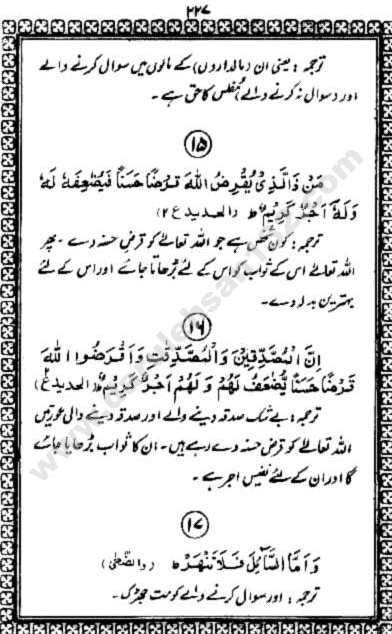 ۲۲۷
ترجمہ : یعنی ان (مالداروں) کے مالوں میں سوال کرنے والے
اور (سوال نہ کرنے والے) مفلس کا حق ہے ۔
۱۵
مَنْ ذَا الَّذِیْ یُقْرِضُ اللّٰہَ قَرْضًا حَسَنًا فَیُضٰعِفَہٗ لَہٗ
وَلَہٗٓ اَجْرٌ کَرِیْمٌ ط (الحدید ع ۲)
ترجمہ : کون شخص ہے جو اللہ تعالےٰ کو قرض حسنہ دے ۔ پھر
اللہ تعالےٰ اس کے ثواب کو اس کے لئے بڑھاتا جائے اور اس کے لئے
بہترین بدلہ دے ۔
۱۶
اِنَّ الْمُصَّدِّقِیْنَ وَالْمُصَّدِّقٰتِ وَاَقْرَضُوا اللّٰہَ
قَرْضًا حَسَنًا یُّضٰعَفُ لَهُمْ وَلَهُمْ اَجْرٌ کَرِیْمٌ ط (الحدید ع)
ترجمہ : بے شک صدقہ دینے والے اور صدقہ دینے والی عورتیں
اللہ تعالےٰ کو قرض حسنہ دے رہے ہیں ۔ ان کا ثواب بڑھایا جائے
گا اور ان کے لئے نفیس اجر ہے ۔
۱۷
وَاَمَّا السَّآئِلَ فَلَا تَنْہَرْ ط (والضّحٰی)
ترجمہ : اور سوال کرنے والے کو مت جھڑک ۔